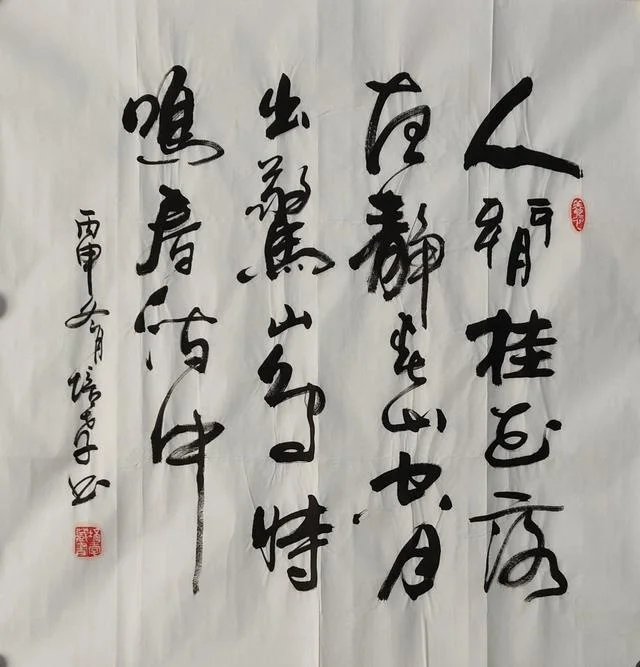 人閒桂花落
夜靜春山空月
出驚山鳥時
鳴春澗中
丙申冬月培书